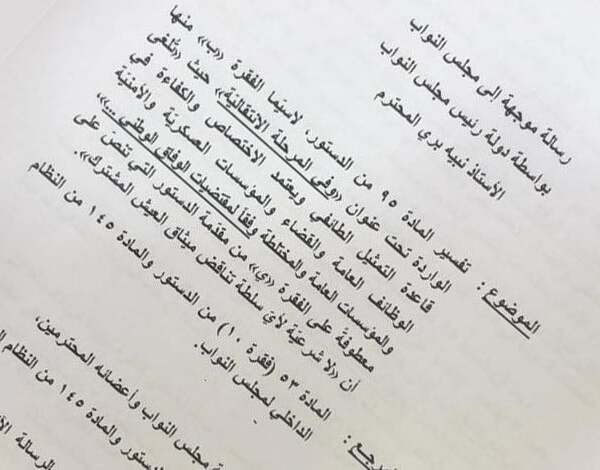 رسالة موجهة إلى مجلس النواب
بواسطة دولة رئيس مجلس النواب
الأستاذ نبيه بري المحترم
الموضوع: تفسير المادة ٩٥ من الدستور، لاسيما الفقرة «ب» منها
الواردة تحت عنوان «وفي المرحلة الإنتقالية» حيث «تلغى
قاعدة التمثيل الطائفي ويعتمد الاختصاص والكفاءة في
الوظائف العامة والقضاء والمؤسسات العسكرية والأمنية
والمؤسسات العامة والمختلطة وفقا لمقتضيات الوفاق الوطني ...»،
معطوفة على الفقرة «ي» من مقدمة الدستور التي تنص على
أن «لا شرعية لأي سلطة تناقض ميثاق العيش المشترك».
المادة ٥٣ (فقرة ١٠) من الدستور والمادة ١٤٥ من النظام
الداخلي لمجلس النواب.
مجلس النواب وأعضائه المحترمين،
الدستور والمادة ١٤٥ من النظام
الرسالة